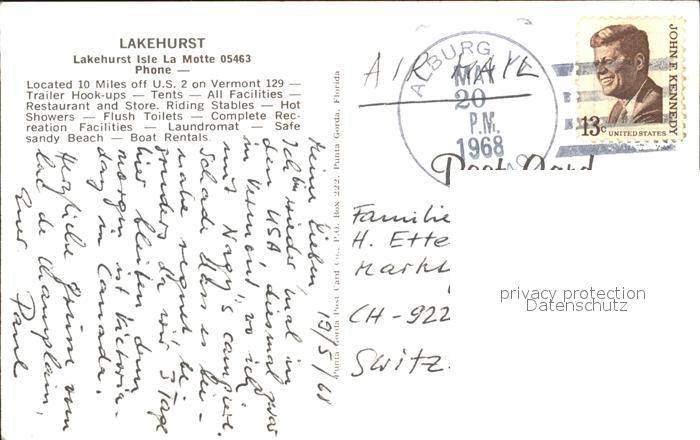 LAKEHURST
Lakehurst Isle La Motte 05463
Phone —
Located 10 Miles off U.S. 2 on Vermont 129 —
Trailer Hook-ups — Tents — All Facilities —
Restaurant and Store. Riding Stables — Hot
Showers — Flush Toilets — Complete Rec-
reation Facilities — Laundromat — Safe
sandy Beach — Boat Rentals
Meine Lieben, 19/5/68
Ich bin wieder mal in
den USA, diesmal zwar
in Vermont, wo ich
mit Nagy's campiere.
Schade dass es bei-
nahe regnet, be-
sonders da wir 3 Tage
hier bleiben, denn
morgen ist Victoria-
day in Canada.
Herzliche Grüsse vom
Lac de Champlain,
Euer Paul
Punta Gorda Post Card Co., P.O. Box 222, Punta Gorda, Florida
AIR MAIL
ALBURG
MAY
20
P.M.
1968
JOHN F. KENNEDY
13c UNITED STATES
Post Card
Familie
H. Ette
Markt
CH-922
Switz.
privacy protection
Datenschutz